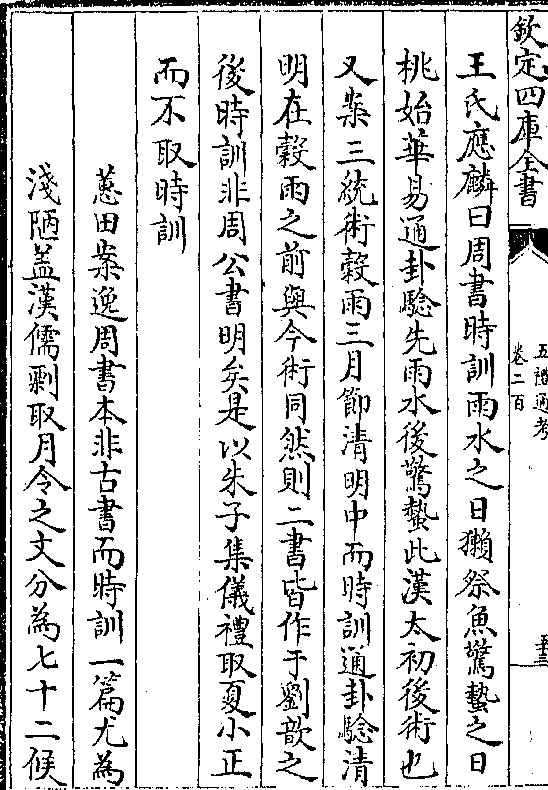 欽定四庫全書
五禮通考
卷二百
王氏應麟曰周書時訓雨水之日獺祭魚驚蟄之日
桃始華易通卦驗先雨水後驚蟄此漢太初後術也
又案三統術穀雨三月節清明中而時訓通卦驗清
明在穀雨之前與今術同然則二書皆作于劉歆之
後時訓非周公書明矣是以朱子集儀禮取夏小正
而不取時訓
蕙田案逸周書本非古書而時訓一篇尤為
淺陋盖漢儒剽取月令之文分為七十二候